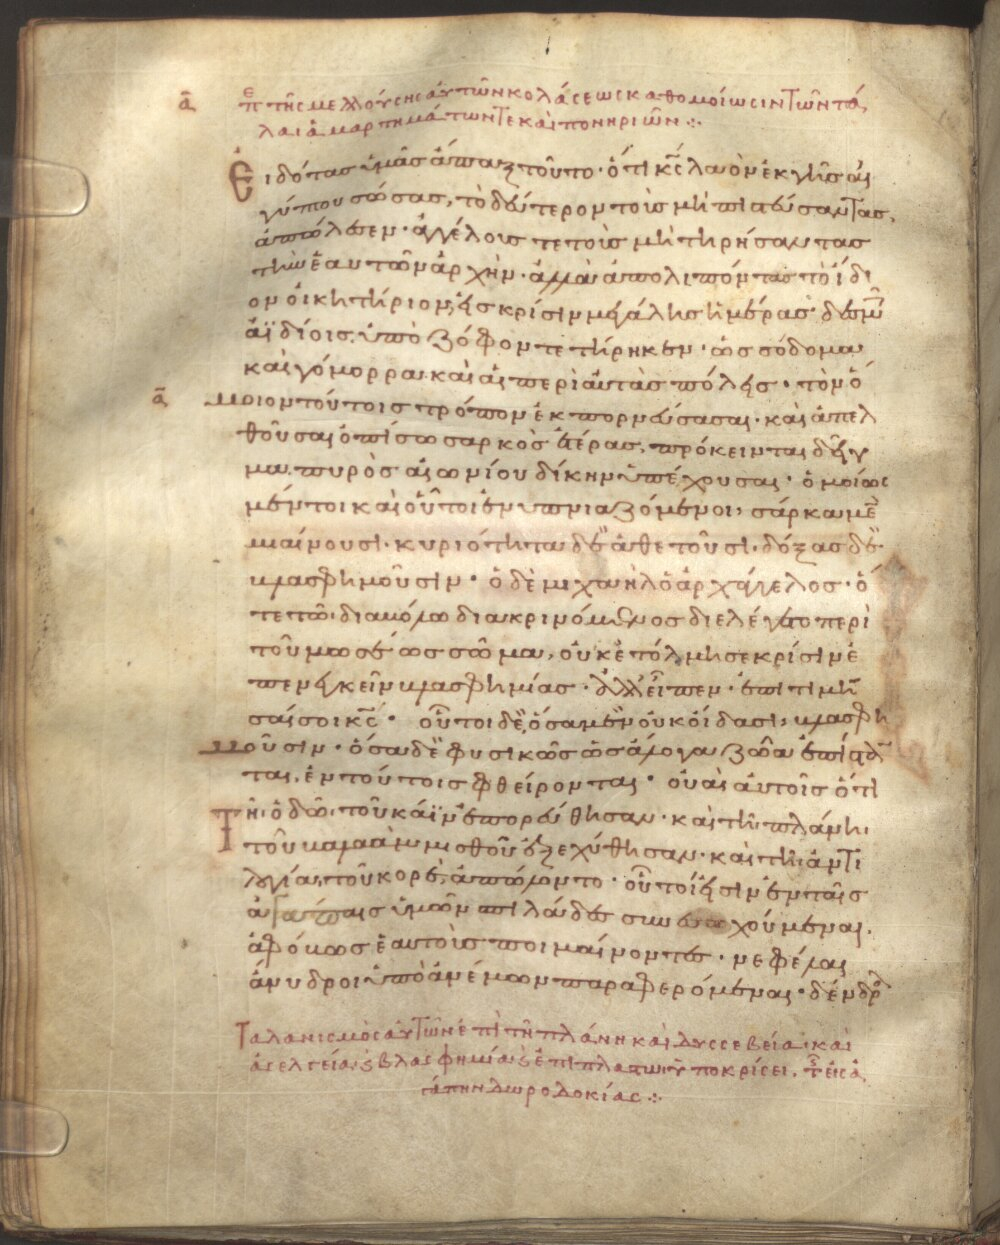 ᾱ περὶ τῆς μελλούσης αὐτῶν κολάσεως καθ ομοίωσιν τῶν πά
λαι ἁμαρτημάτων τε καὶ πονηριῶν ⁘
Εἰδότας ὑμᾶς ἅπαξ τοῦτο· ὅτι κς̄ λαὸν ἐκ γῆς αἰ
γύπτου σώσας, τὸ δεύτερον τοὺς μὴ πιστεύσαντας,
ἀπώλεσεν· ἀγγέλους τε τοὺς μὴ τηρήσαντας
τὴν ἑαυτῶν ἀρχὴν· ἀλλὰ ἀπολιπόντας τὸ ἴδι
ον οἰκητήριον, εἰς κρίσιν μεγάλης ἡμέρας δεσμοῖς
ἀϊδίοις ὑπὸ ζόφον τετήρηκεν· ὡς σόδομα
καὶ γόμορρα καὶ αἱ περὶ αὐτὰς πόλεις· τὸν ὅ
ᾱ μοιον τούτοις τρόπον ἐκπορνεύσασαι· καὶ ἀπελ
θοῦσαι ὀπίσω σαρκὸς ἑτέρας, πρόκεινται δεῖγ
μα πυρὸς αἰωνίου δίκην ὑπέχουσαι· ὁμοίως
μέντοι καὶ οὗτοι ἐνυπνιαζόμενοι, σάρκα μὲν
μιαίνουσι· κυριότητα δὲ ἀθετοῦσι· δόξας δὲ
βλασφημοῦσιν· ὁ δὲ μιχαὴλ ὁ ἀρχάγγελος· ὅ
τε τῶ διαβόλω διακρινόμενος διελέγετο περὶ
τοῦ μωσέως σώματος, οὐκ ἐτόλμησε κρίσιν ἐ
πενεγκεῖν βλασφημίας· ἀλλ εἶπεν· ἐπιτιμή
σαι σοι κς̄· οὗτοι δὲ, ὅσα μὲν οὐκ οἴδασι, βλασφη
μοῦσιν· ὅσα δὲ φυσικῶς ὡς ἄλογα ζῶα ἐπίσταν
ται, ἐν τούτοις φθείρονται· οὐαὶ αὐτοῖς ὅτι
Τῆ ὁδῶ τοῦ κάϊν ἐπορεύθησαν· καὶ τῆ πλάνη
τοῦ βαλαὰμ μισθοῦ ἐξεχύθησαν· καὶ τῆ ἀντι
λογία τοῦ κορὲ ἀπώλοντο· οὗτοί εἰσιν ἐν ταῖς
ἀγάπαις ὑμῶν σπιλάδες συνευωχούμεναι·
ἀφόβως ἑαυτοὺς ποιμαίνοντες· νεφέλαι
ἄνυδροι ὑπὸ ἀνέμων παραφερόμεναι· δένδρα
Ταλανισμὸς αὐτῶν ἐπὶ τῆ πλάνη καὶ δυσσεβεία καὶ
ἀσελγεία καὶ βλασφημία καὶ ἐπιπλάστω ὑποκρίσει,
ἀπην δωροδοκίας ⁘